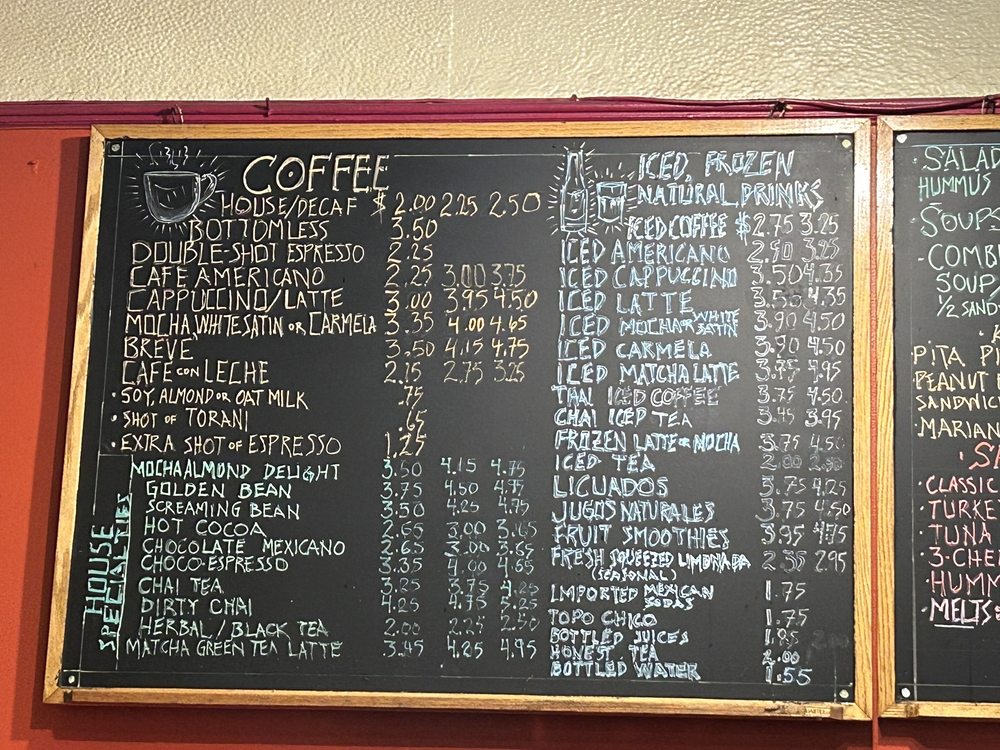 COFFEE
HOUSE/DECAF $ 2.00 2.25 2.50
BOTTOMLESS 3.50
DOUBLE-SHOT ESPRESSO 2.25
CAFE AMERICANO 2.25 3.00 3.75
CAPPUCCINO/LATTE 3.00 3.95 4.50
MOCHA, WHITE SATIN OR CARMELA 3.35 4.00 4.65
BREVE 3.50 4.15 4.75
CAFE CON LECHE 2.15 2.75 3.25
• SOY, ALMOND OR OAT MILK .75
• SHOT OF TORANI .65
• EXTRA SHOT OF ESPRESSO 1.25
HOUSE SPECIALTIES
MOCHA ALMOND DELIGHT 3.50 4.15 4.75
GOLDEN BEAN 3.75 4.50 4.95
SCREAMING BEAN 3.50 4.25 4.75
HOT COCOA 2.65 3.00 3.65
CHOCOLATE MEXICANO 2.65 3.00 3.65
CHOCO-ESPRESSO 3.35 4.00 4.65
CHAI TEA 3.25 3.75 4.25
DIRTY CHAI 4.25 4.75 5.25
HERBAL/BLACK TEA 2.00 2.25 2.50
MATCHA GREEN TEA LATTE 3.45 4.25 4.95
ICED, FROZEN
NATURAL DRINKS
ICED COFFEE $ 2.75 3.25
ICED AMERICANO 3.25
ICED CAPPUCCINO 3.50 4.35
ICED LATTE 3.50 4.35
ICED MOCHA OR WHITE SATIN 3.90 4.50
ICED CARMELA 3.90 4.50
ICED MATCHA LATTE 3.75 4.95
THAI ICED COFFEE 3.75 4.50
CHAI ICED TEA 3.45 3.95
FROZEN LATTE OR MOCHA 3.75 4.50
ICED TEA 2.00
LICUADOS 3.75 4.25
JUGOS NATURALES 3.75 4.50
FRUIT SMOOTHIES 3.95 4.75
FRESH SQUEEZED LIMONADA 2.35 2.95
(SEASONAL)
IMPORTED MEXICAN SODAS 1.75
TOPO CHICO 1.75
BOTTLED JUICES
HONEST TEA 2.00
BOTTLED WATER 1.55
• SALAD
HUMMUS
• SOUPS
• COMBI
SOUP
1/2 SAND
PITA P
PEANUT
SANDWIC
• MARIAN
• CLASSIC
• TURKE
• TUNA
• 3-CHE
• HUMM
• MELTS